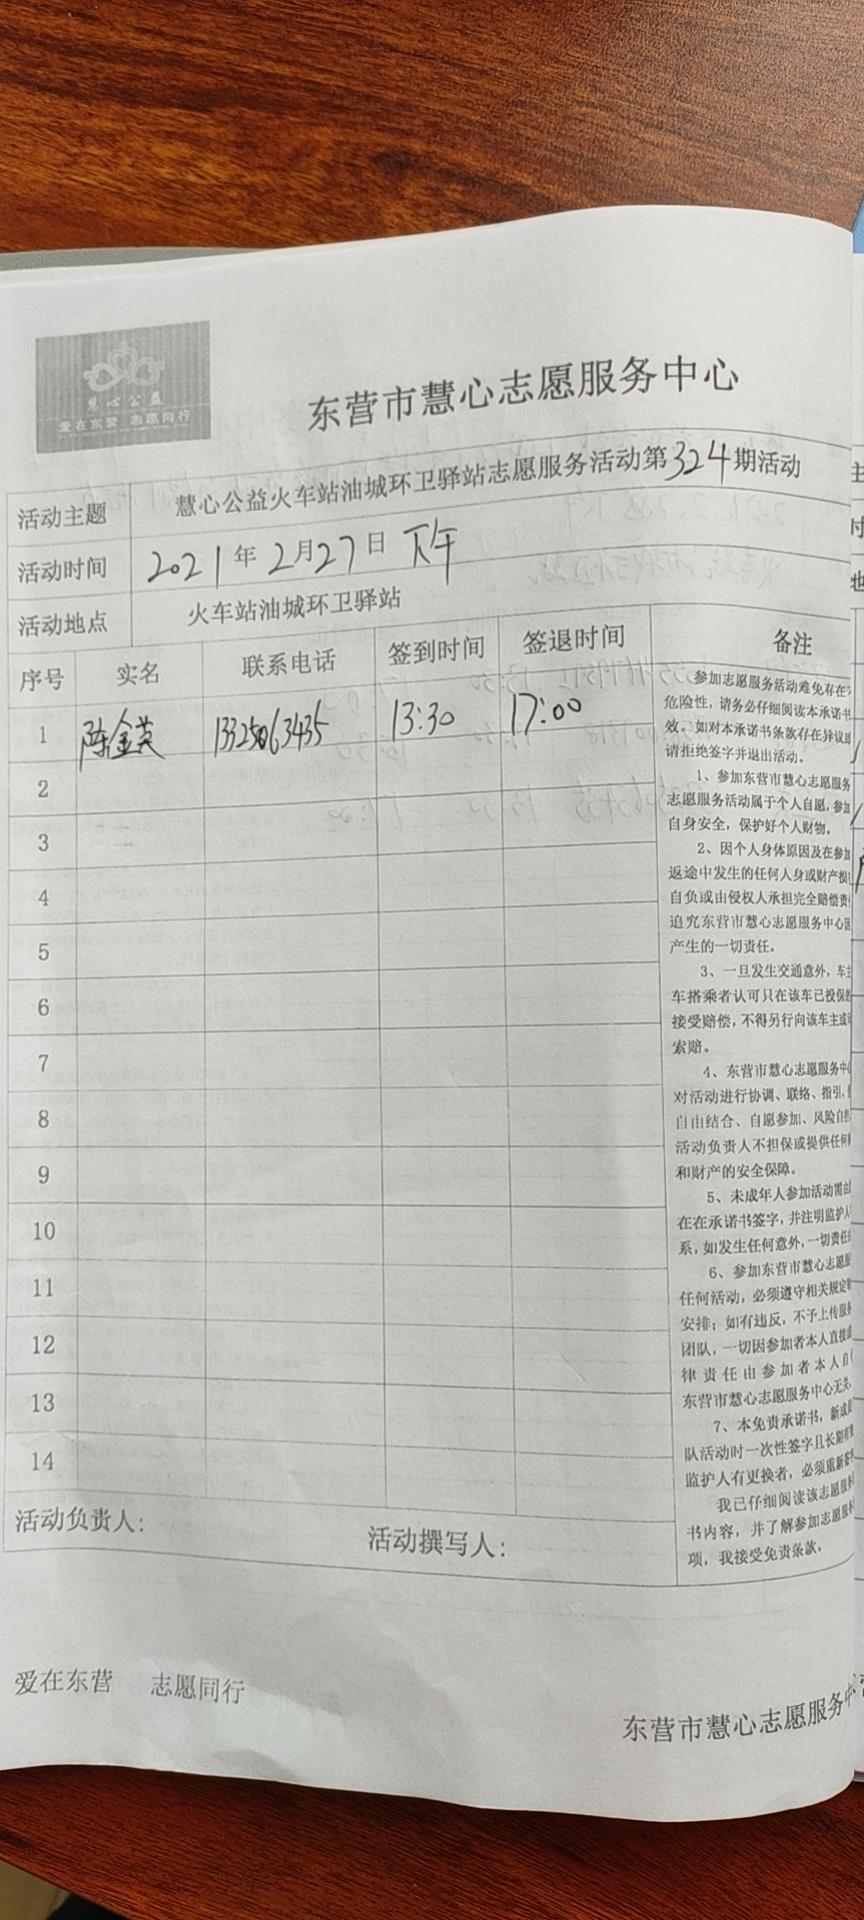 慧心公益
爱在东营 志愿同行
东营市慧心志愿服务中心
活动主题 慧心公益火车站油城环卫驿站志愿服务活动第324期活动
活动时间 2021年2月27日 下午
活动地点 火车站油城环卫驿站
序号 实名 联系电话 签到时间 签退时间 备注
1 陈金英 13325063435 13:30 17:00
2
3
4
5
6
7
8
9
10
11
12
13
14
参加志愿服务活动难免存在
危险性，请务必仔细阅读本承诺书
效。如对本承诺书条款存在异议
请拒绝签字并退出活动。
1、参加东营市慧心志愿服务
志愿服务活动属于个人自愿，参加
自身安全，保护好个人财物。
2、因个人身体原因及在参加
返途中发生的任何人身或财产损
自负或由侵权人承担完全赔偿责
追究东营市慧心志愿服务中心因
产生的一切责任。
3、一旦发生交通意外，车主
车搭乘者认可只在该车已投保
接受赔偿，不得另行向该车主或
索赔。
4、东营市慧心志愿服务中心
对活动进行协调、联络、指引，
自由结合、自愿参加、风险自
活动负责人不担保或提供任何
和财产的安全保障。
5、未成年人参加活动需由
在在承诺书签字，并注明监护人
系，如发生任何意外，一切责任
6、参加东营市慧心志愿服
任何活动，必须遵守相关规定
安排；如有违反，不予上传服务
团队，一切因参加者本人直接
律责任由参加者本人自
东营市慧心志愿服务中心无关。
7、本免责承诺书，新成
队活动时一次性签字且长期有
监护人有更换者，必须重新签
我已仔细阅读该志愿服务
书内容，并了解参加志愿服
项，我接受免责条款。
活动负责人： 活动撰写人：
爱在东营 志愿同行
东营市慧心志愿服务中